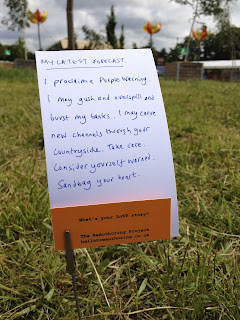 MY LATEST FORECAST.
I proclaim a Purple Warning.
I may gush and overspill and
burst my banks. I may carve
new channels through your
Countryside. Take care.
Consider yourself warned.
Sandbag your heart.
What's your LOVE story?
The ReAuthoring Project
helloreauthoring.co.uk